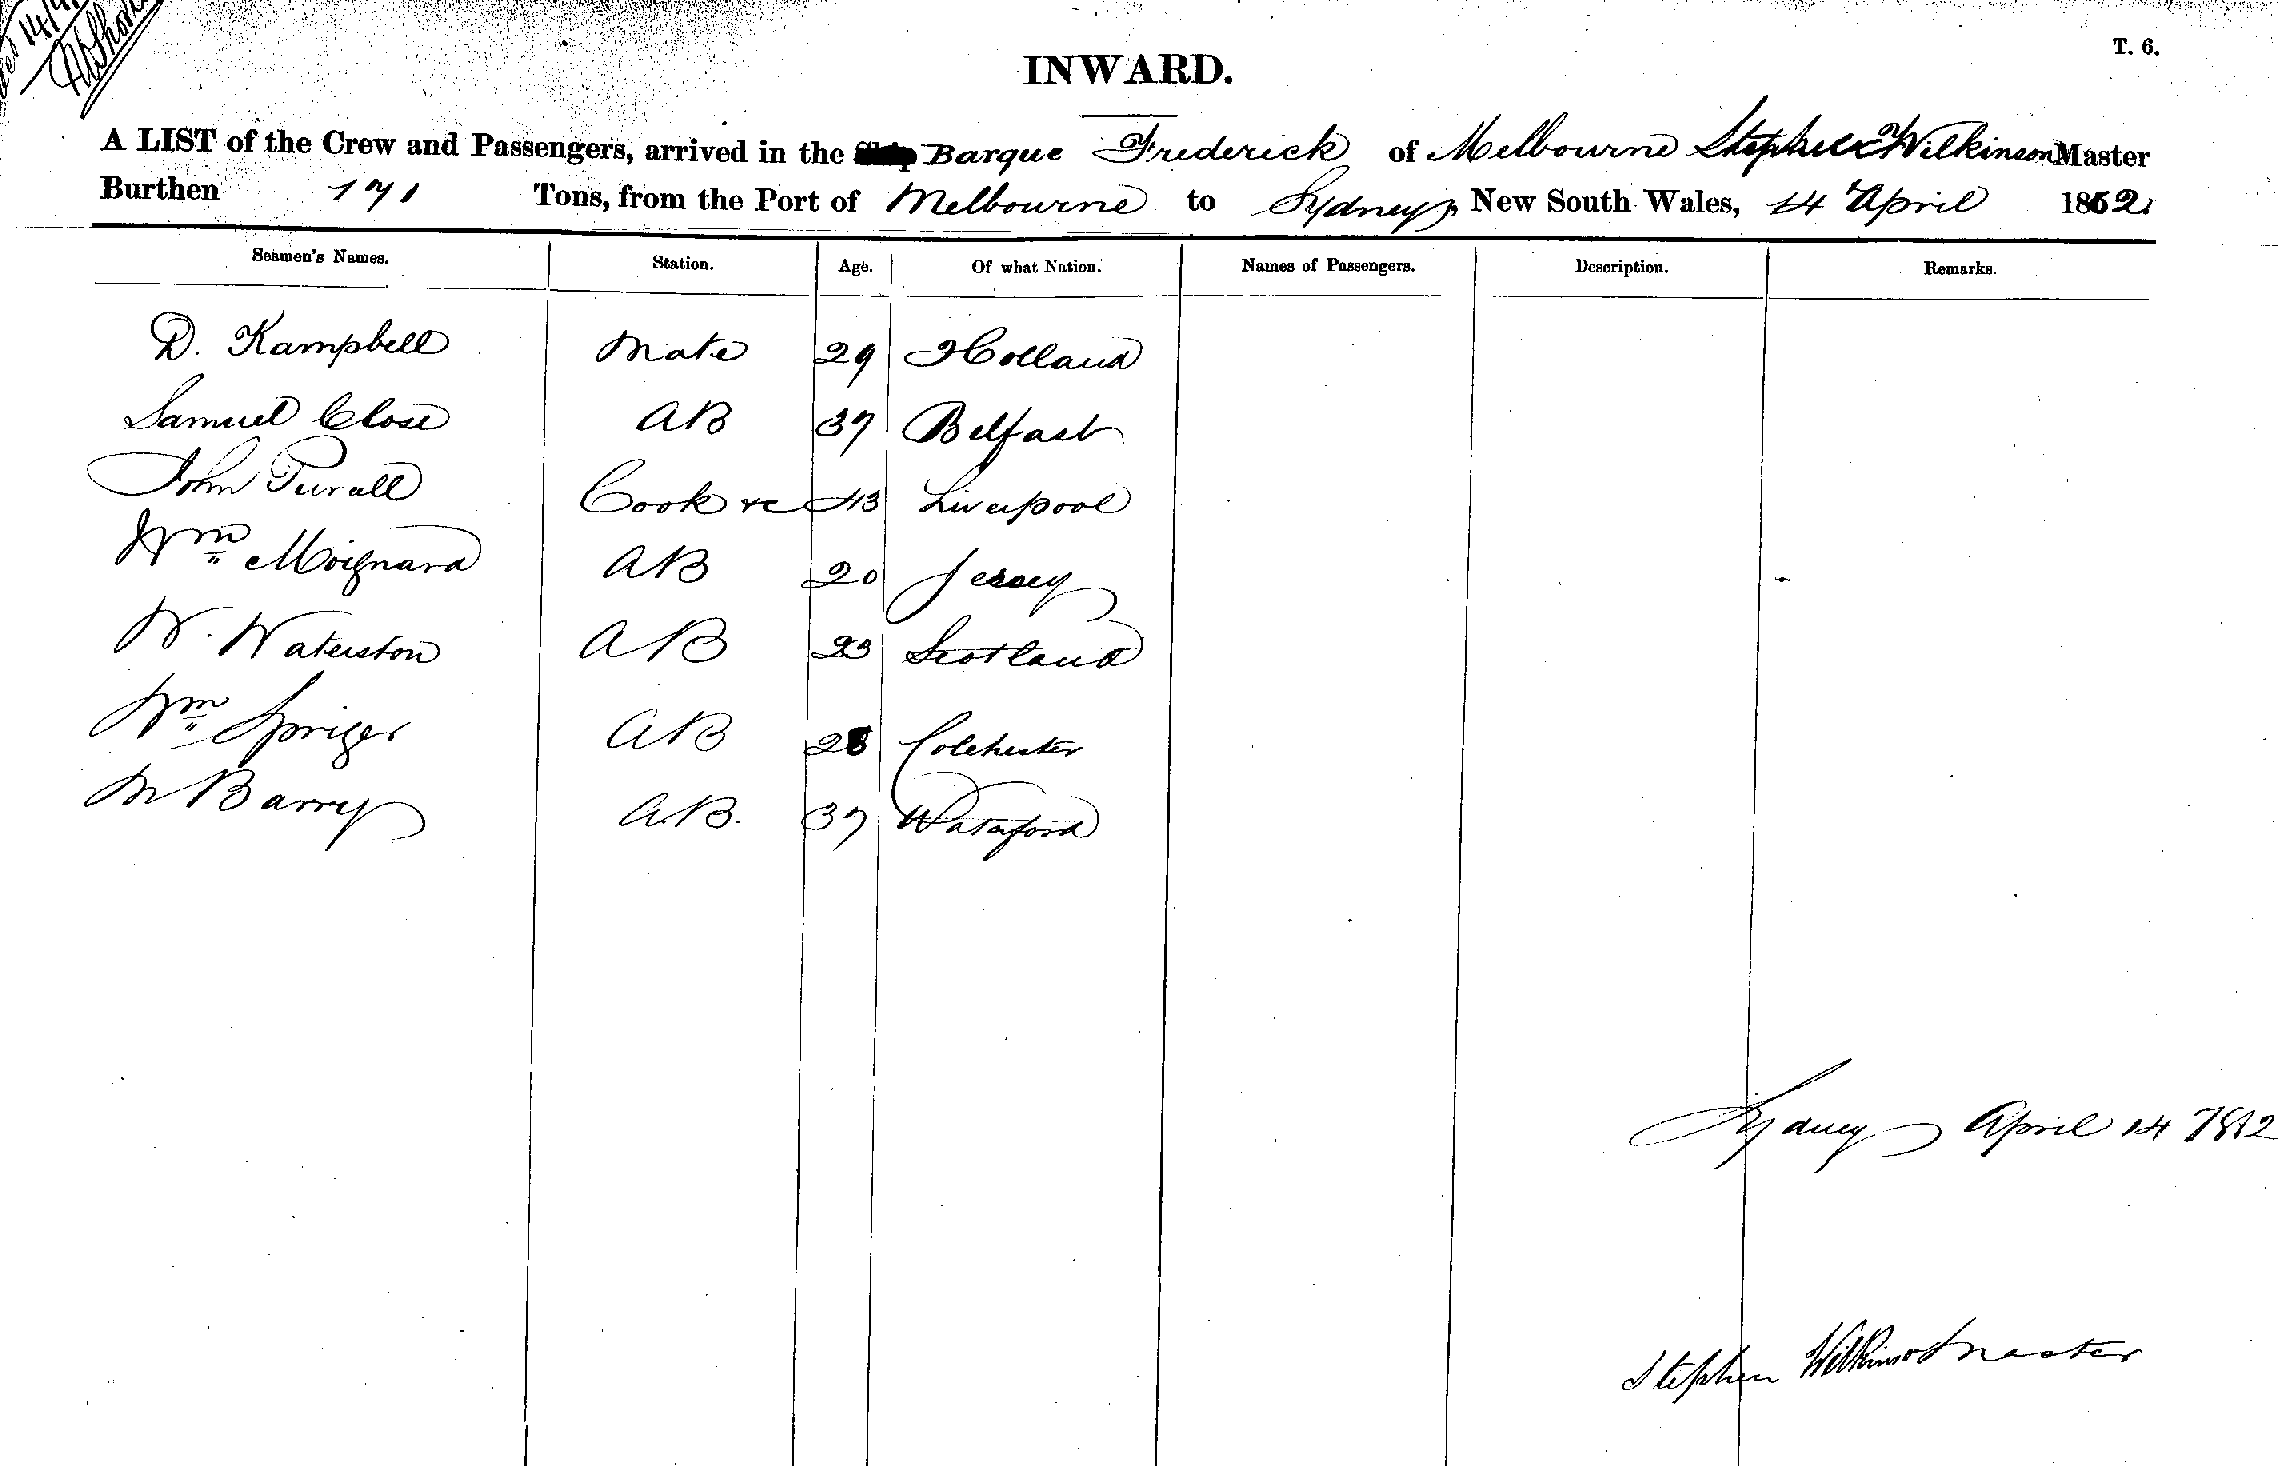 INWARD.
T. 6.
A LIST of the Crew and Passengers, arrived in the Ship Barque Frederick of Melbourne Stephen Wilkinson Master
Burthen 171 Tons, from the Port of Melbourne to Sydney New South Wales, 14 April 1862
Seamen's Names. Station. Age. Of what Nation. Names of Passengers. Description. Remarks.
D. Kampbell Mate 29 Holland
Samuel Close AB 37 Belfast
John Cook &c 43 Liverpool
Wm Moignard AB 20 Jersey
W. Waterston AB 23 Scotland
Wm AB 28 Colchester
M Barry AB. 37 Waterford
Sydney April 14 1862
Stephen Wilkinson Master